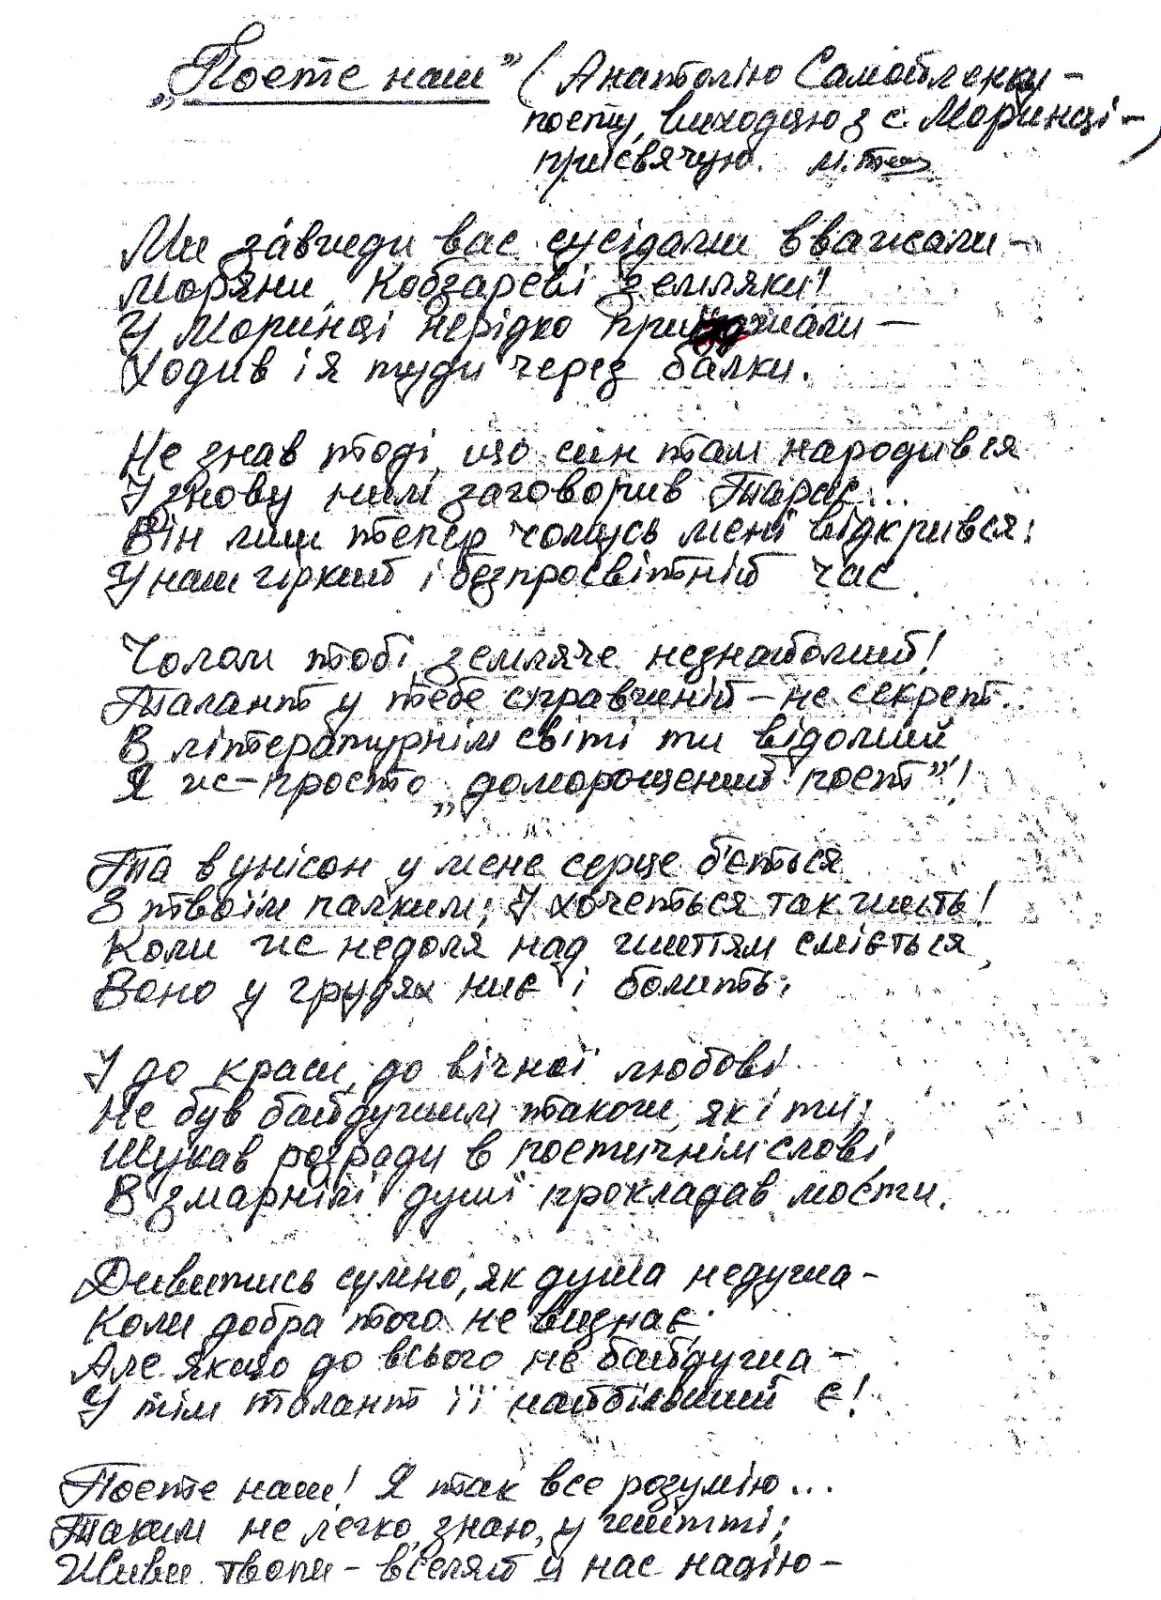 „Поете наш" (Анатолію Самойленку –
поету, виходцю з с. Моринці –)
присвячую. М.
Ми зáвжди вас сусідами вважали –
Моряни, Кобзареві земляки!
У Моринці нерідко
Ходив і я туди через балки.
Не знав тоді, що син там народився
І знову ним заговорив Тарас...
Він лиш тепер чомусь мені відкрився:
У наш гіркий і безпросвітній час.
Чолом тобі, земляче незнайомий!
Талант у тебе справжній – не секрет.
В літературнім світі ти відомий,
Я ж – просто „доморощений поет"!
Та в унісон у мене серце б'ється
З твоїм палким; І хочеться так жить!
Коли ж недоля над життям сміється,
Воно у грудях ниє і болить;
І до краси, до вічної любові
Не був байдужим також, як і ти;
Шукав розради в поетичнім слові,
В змарнілі душі прокладав мости.
Дивитись сумно, як душа недужа –
Коли добра того не визнає.
Але якщо до всього не байдужа –
У тім талант її найбільший є!
Поете наш! Я так все розумію...
Таким не легко, знаю, у житті;
Живи, твори – вселяй у нас надію –